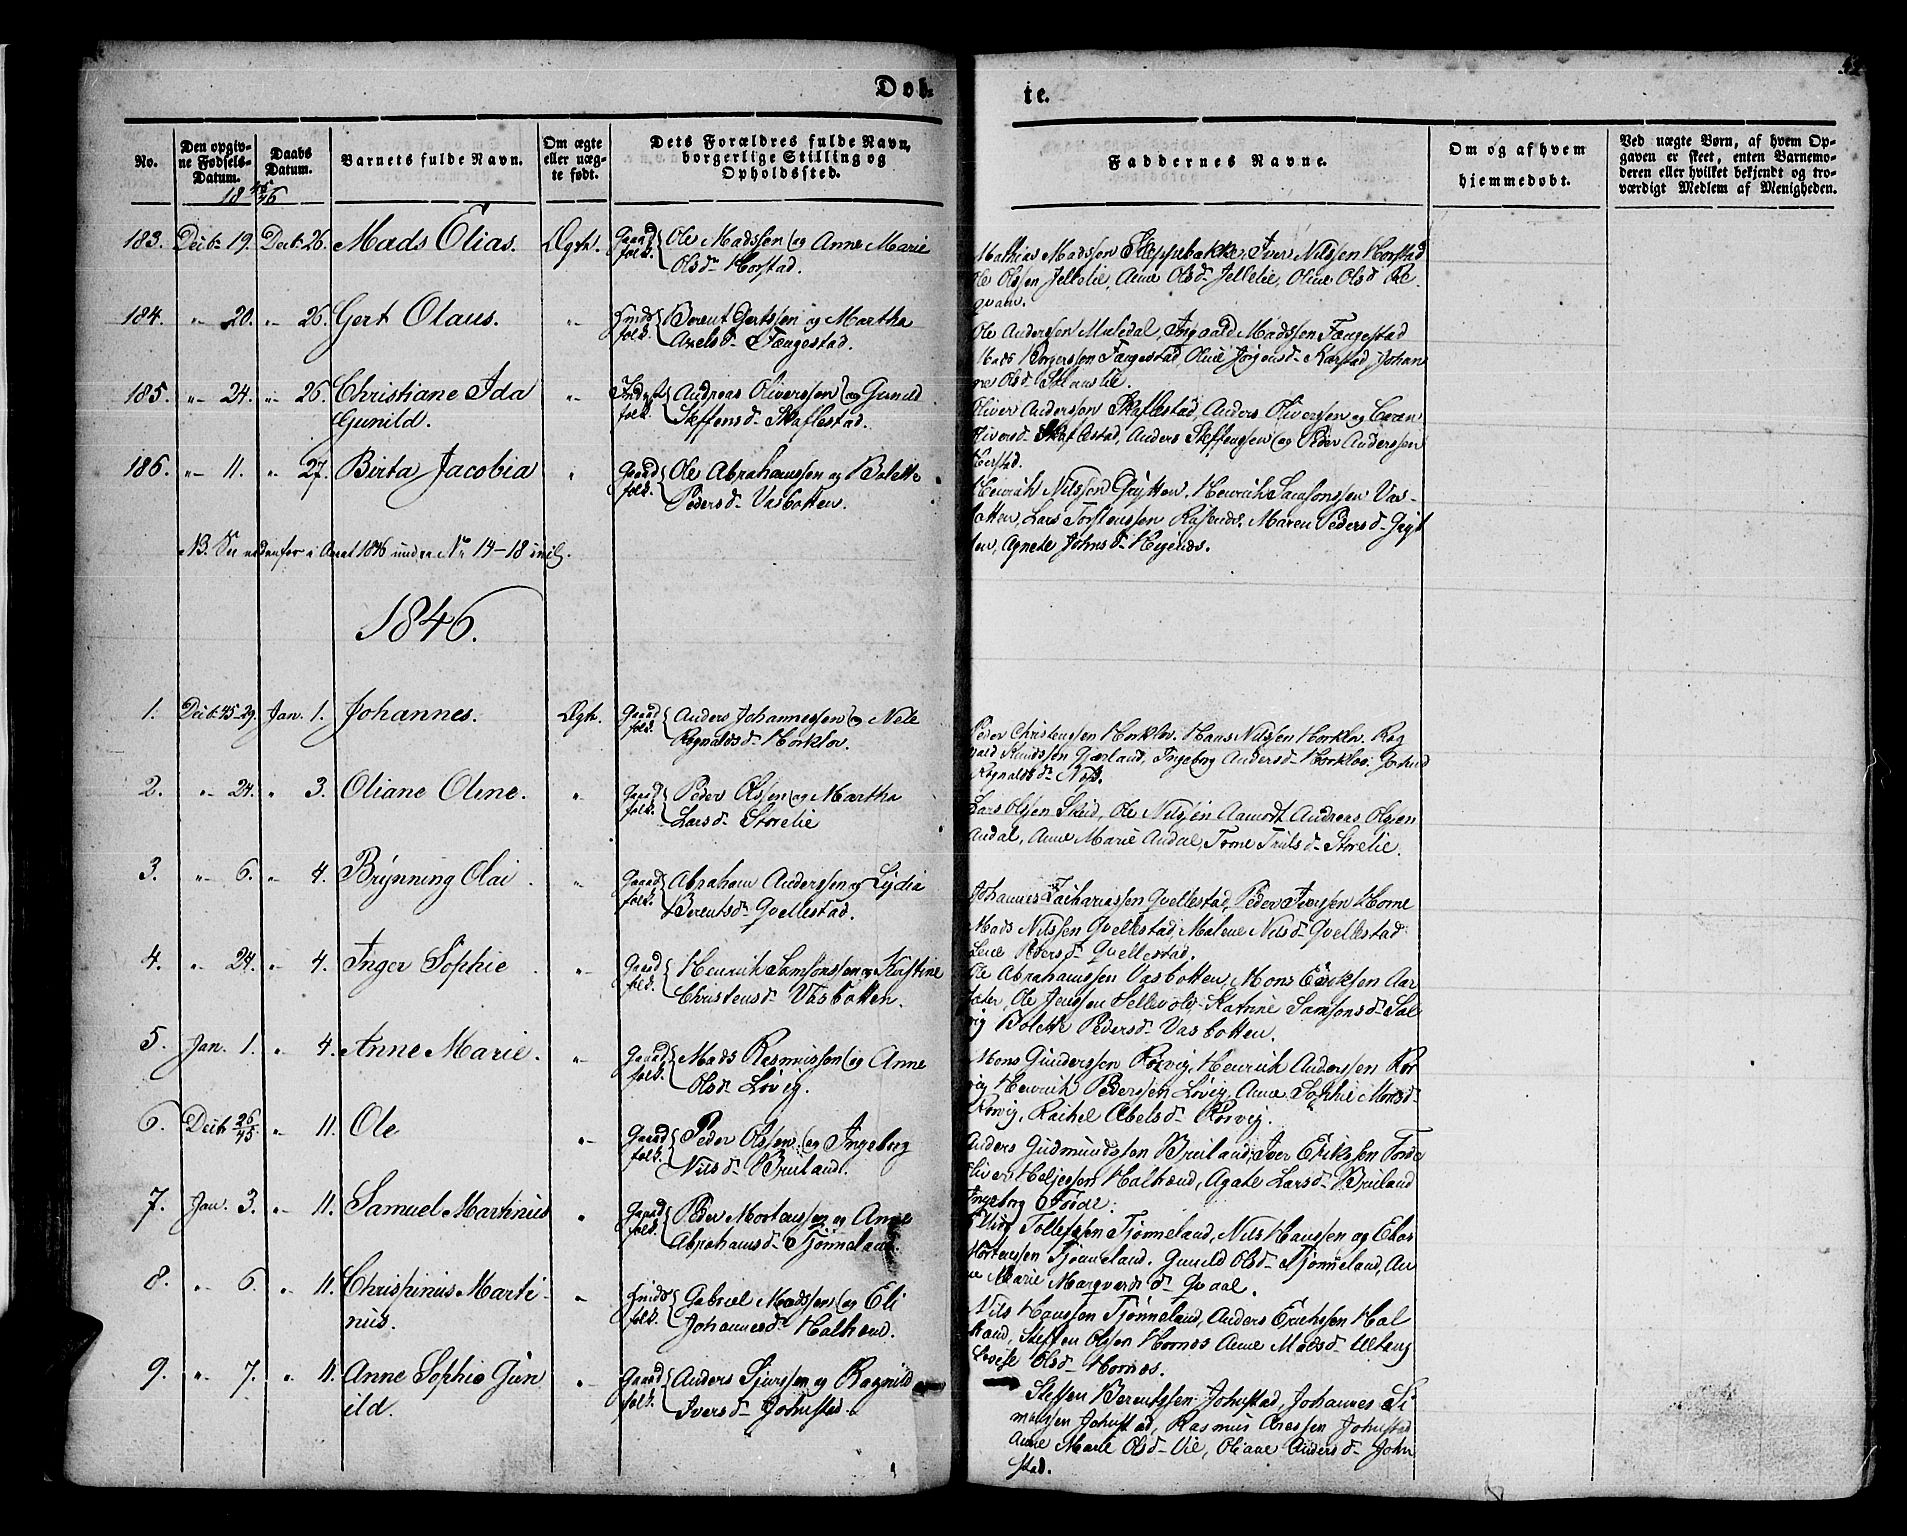 Døb-
te.
No.
Den opgiv-
ne Fødsels-
Datum.
Daabs
Datum.
18 45/46
Barnets fulde Navn.
Om ægte
eller uæg-
te født.
Dets Forældres fulde Navn,
borgerlige Stilling og
Opholdssted.
Faddernes Navne.
Om og af hvem
hjemmedøbt.
Ved uægte Børn, af hvem Op-
gaven er skeet, enten Barnemo-
deren eller hvilket bekjendt og tro-
værdigt Medlem af Menigheden.
183. Decb: 19. Decb: 26. Mads Elias. Ægte. Gaard folk. Ole Madssen og Anne Marie
Olsd. Horstad.
Mathias Madssen Skeppebakke, Iver Nilssen Horstad
Ole Olssen Jellelie, Anne Olsd. Jellelie, Oline Olsd. Re
qvam.
184. " 20. " 26. Gert Olaus. " Huus folk. Berent Gertssen og Martha
Axelsd. Fængestad.
Ole Anderssen Muledal, Ingvald Madssen Fængestad
Mads Børgerssen Fængestad, Oline Jørgensd. Karstad, Johan
ne Olsd.
185. " 24. " 26. Christiane Ida
Gunild. " Indst folk. Andreas Oliverssen og Gunild
Steffensd. Skaflestad.
Oliver Anderssen Skaflestad, Anders Oliverssen og Beran
Oliversd. Skaflestad, Anders Steffenssen og Peder Anderssen
186. " 11. " 27. Birta Jacobia " Gaard folk. Ole Abrahamssen og Bolette
Pedersd. Vasbotten.
Henrik Nilssen Grytten, Henrik Samsonssen Vas-
botten, Lars Torstenssen Rafends, Maren Pedersd. Gryt
ten, Agnete Johnsd. Høgends.
NB. See nedenfor i Aaret 1846 under No 14-18 incl.
1846.
1. Decb: 45-29. Jan. 1. Johannes. Ægte. Gaard folk. Anders Johannessen og Nele
Rognaldsd. Horklov.
Peder Christenssen Horklov, Hans Nilssen Horklov. Rog
vald Knudssen Gjærland, Ingeborg Andersd. Horklov.
Rognaldsd.
2. " 24. " 3. Oliane Oline. " Gaard folk. Peder Olssen og Martha
Larsd. Storelie
Lars Olssen Skeid, Ole Nilssen Aamodt, Andreas Olssen
Andal, Anne Marie Andal, Tome Trulsd. Storelie.
3. " 6. " 4. Brynning Olai. " Gaard folk. Abraham Anderssen og Lydia
Berentsd. Qvellestad.
Johannes Zachariassen Qvellestad, Peder Iverssen Horne
Mads Nilssen Qvellestad, Malene Nilsd. Qvellestad
Lene Pedersd. Qvellestad.
4. " 24. " 4. Inger Sophie " Gaard folk. Henrik Samsonssen og Kirstine
Christensd. Vasbotten.
Ole Abrahamssen Vasbotten, Mons Erikssen Aar
sæter, Ole Jenssen Hellevold, Katrine Samsonsd. Sol
vig Bolette Pedersd. Vasbotten.
5. Jan. 1. " 4. Anne Marie. " Gaard folk. Mads Rasmussen og Anne
Olsd. Løvig.
Mons Gunderssen Rørvig, Henrik Anderssen Rør
vig Henrik Pederssen Løvig, Anne Sophie Monsd.
Rørvig, Rachel Abelsd. Rørvig.
6. Decb 26/45. " 11. Ole " Gaard folk. Peder Olssen og Ingeborg
Nilsd. Bruland.
Anders Gudmundssen Bruland, Iver Erikssen Førde
Oliver Heljessen Halbrend, Agate Larsd. Bruland
Ingeborg Førde.
7. Jan. 3. " 11. Samuel Martinus " Gaard folk. Peder Mortenssen og Anne
Abrahamsd. Tjønneland.
Tollefssen Tjønneland, Nils Hanssen og Elias
Mortenssen Tjønneland. Gunild Olsd. Tjønneland, An
ne Marie Marqvardsd. Qvaal.
8. " 6. " 11. Christinus Marti-
nus. " Huus folk. Gabriel Madssen og Eli
Johannesd. Halbrend.
Nils Hanssen Tjønneland, Anders Erichssen Hal
brend, Steffen Olssen Hornes Anne Madsd. Ulltang
Lovise Olsd. Hornes.
9. " 7. " 11. Anne Sophie Gun
ild. " Gaard folk. Anders Sjurssen og Ragnild
Iversd. Johnstad.
Steffen Berentssen Johnstad, Johannes Si
monssen Johnstad, Rasmus Aressen Johnstad
Anne Marie Olsd. Vie, Oliane Andersd. John
stad.